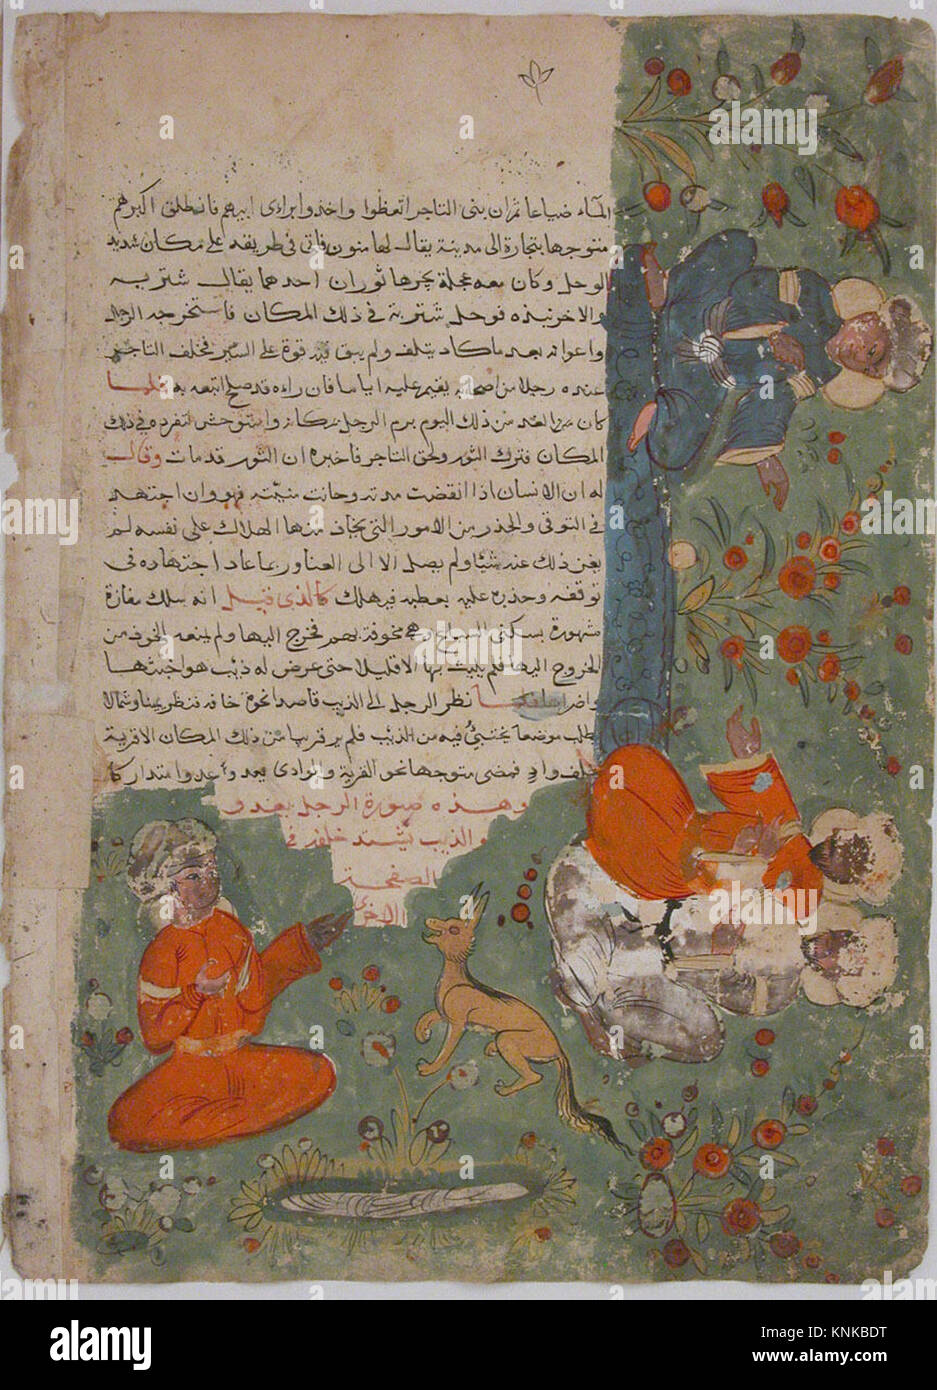 المآء ضياعا ثم ان بنى التاجر اتعظوا واخذوا براءى ابيهم فانطلق اكبرهم
متوجها بتجارة الى مدينة يقال لها منون فاتى فى طريقه على مكان شديد
الوحل وكان معه عجلة يجرها ثوران احدهما يقال شتربه
والاخر بنده فوحل شتربة فى ذلك المكان فاستخرجه الرجل
واعوانه بعد ما كاد يتلف ولم يبق فيه قوة على السير فخلف التاجر
عنده رجلا من اصحابه يقيم عليه اياما فان راءه قد صلح اتبعه به فلما
كان من الغد من ذلك اليوم برم الرجل مكانه واستوحش التفرده فى ذلك
المكان فترك الثور ولحق التاجر فاخبره ان الثور قد مات وقال
له ان الانسان اذا انقضت مدته وحانت منيته فهو وان اجتهد
فى التوقى والحذر من الامور التى يخاف منها الهلاك على نفسه لم
يغن ذلك عنه شيئا ولم يصل الا الى العنا وربما عاد اجتهاده فى
توقفه وحذره عليه بعطبه فيهلك كالذى قيل انه سلك مفازة
مشهورة بسكنى السباع وهى مخوفة بهم فخرج اليها ولم يمنعه الخوف من
الخروج اليها فلم يلبث بها الا قليلا حتى عرض له ذئب هو اخبثها
واضراها نظر الرجل الى الذيب قاصدا نحوه خافه فنظر يمينا وشمالا
يطلب موضعا يختبئ فيه من الذئب فلم ير قربيا من ذلك المكان الا قرية
خلف واد فمضى متوجها نحو القرية والوادى يعد و
وهذه صورة الرجل يعدو و
والذيب يشتد خلفه فى
الصفحة
الاخرى
alamy
Image ID: KNKBDT
www.alamy.com